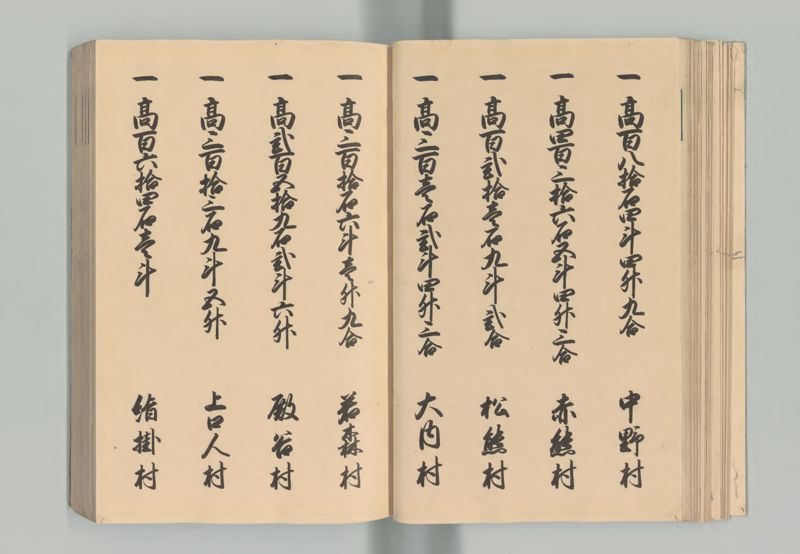 一 高百八拾石四斗四升九合 中野村
一 高四百三拾六石五斗四升三合 赤熊村
一 高百弐拾壱石九斗弐合 松熊村
一 高三百壱石弐斗四升三合 大内村
一 高三百拾石六斗壱升九合 若森村
一 高弐百五拾九石弐斗六升 殿谷村
一 高三百拾三石九斗五升 上口人村
一 高百六拾四石壱斗 掛村